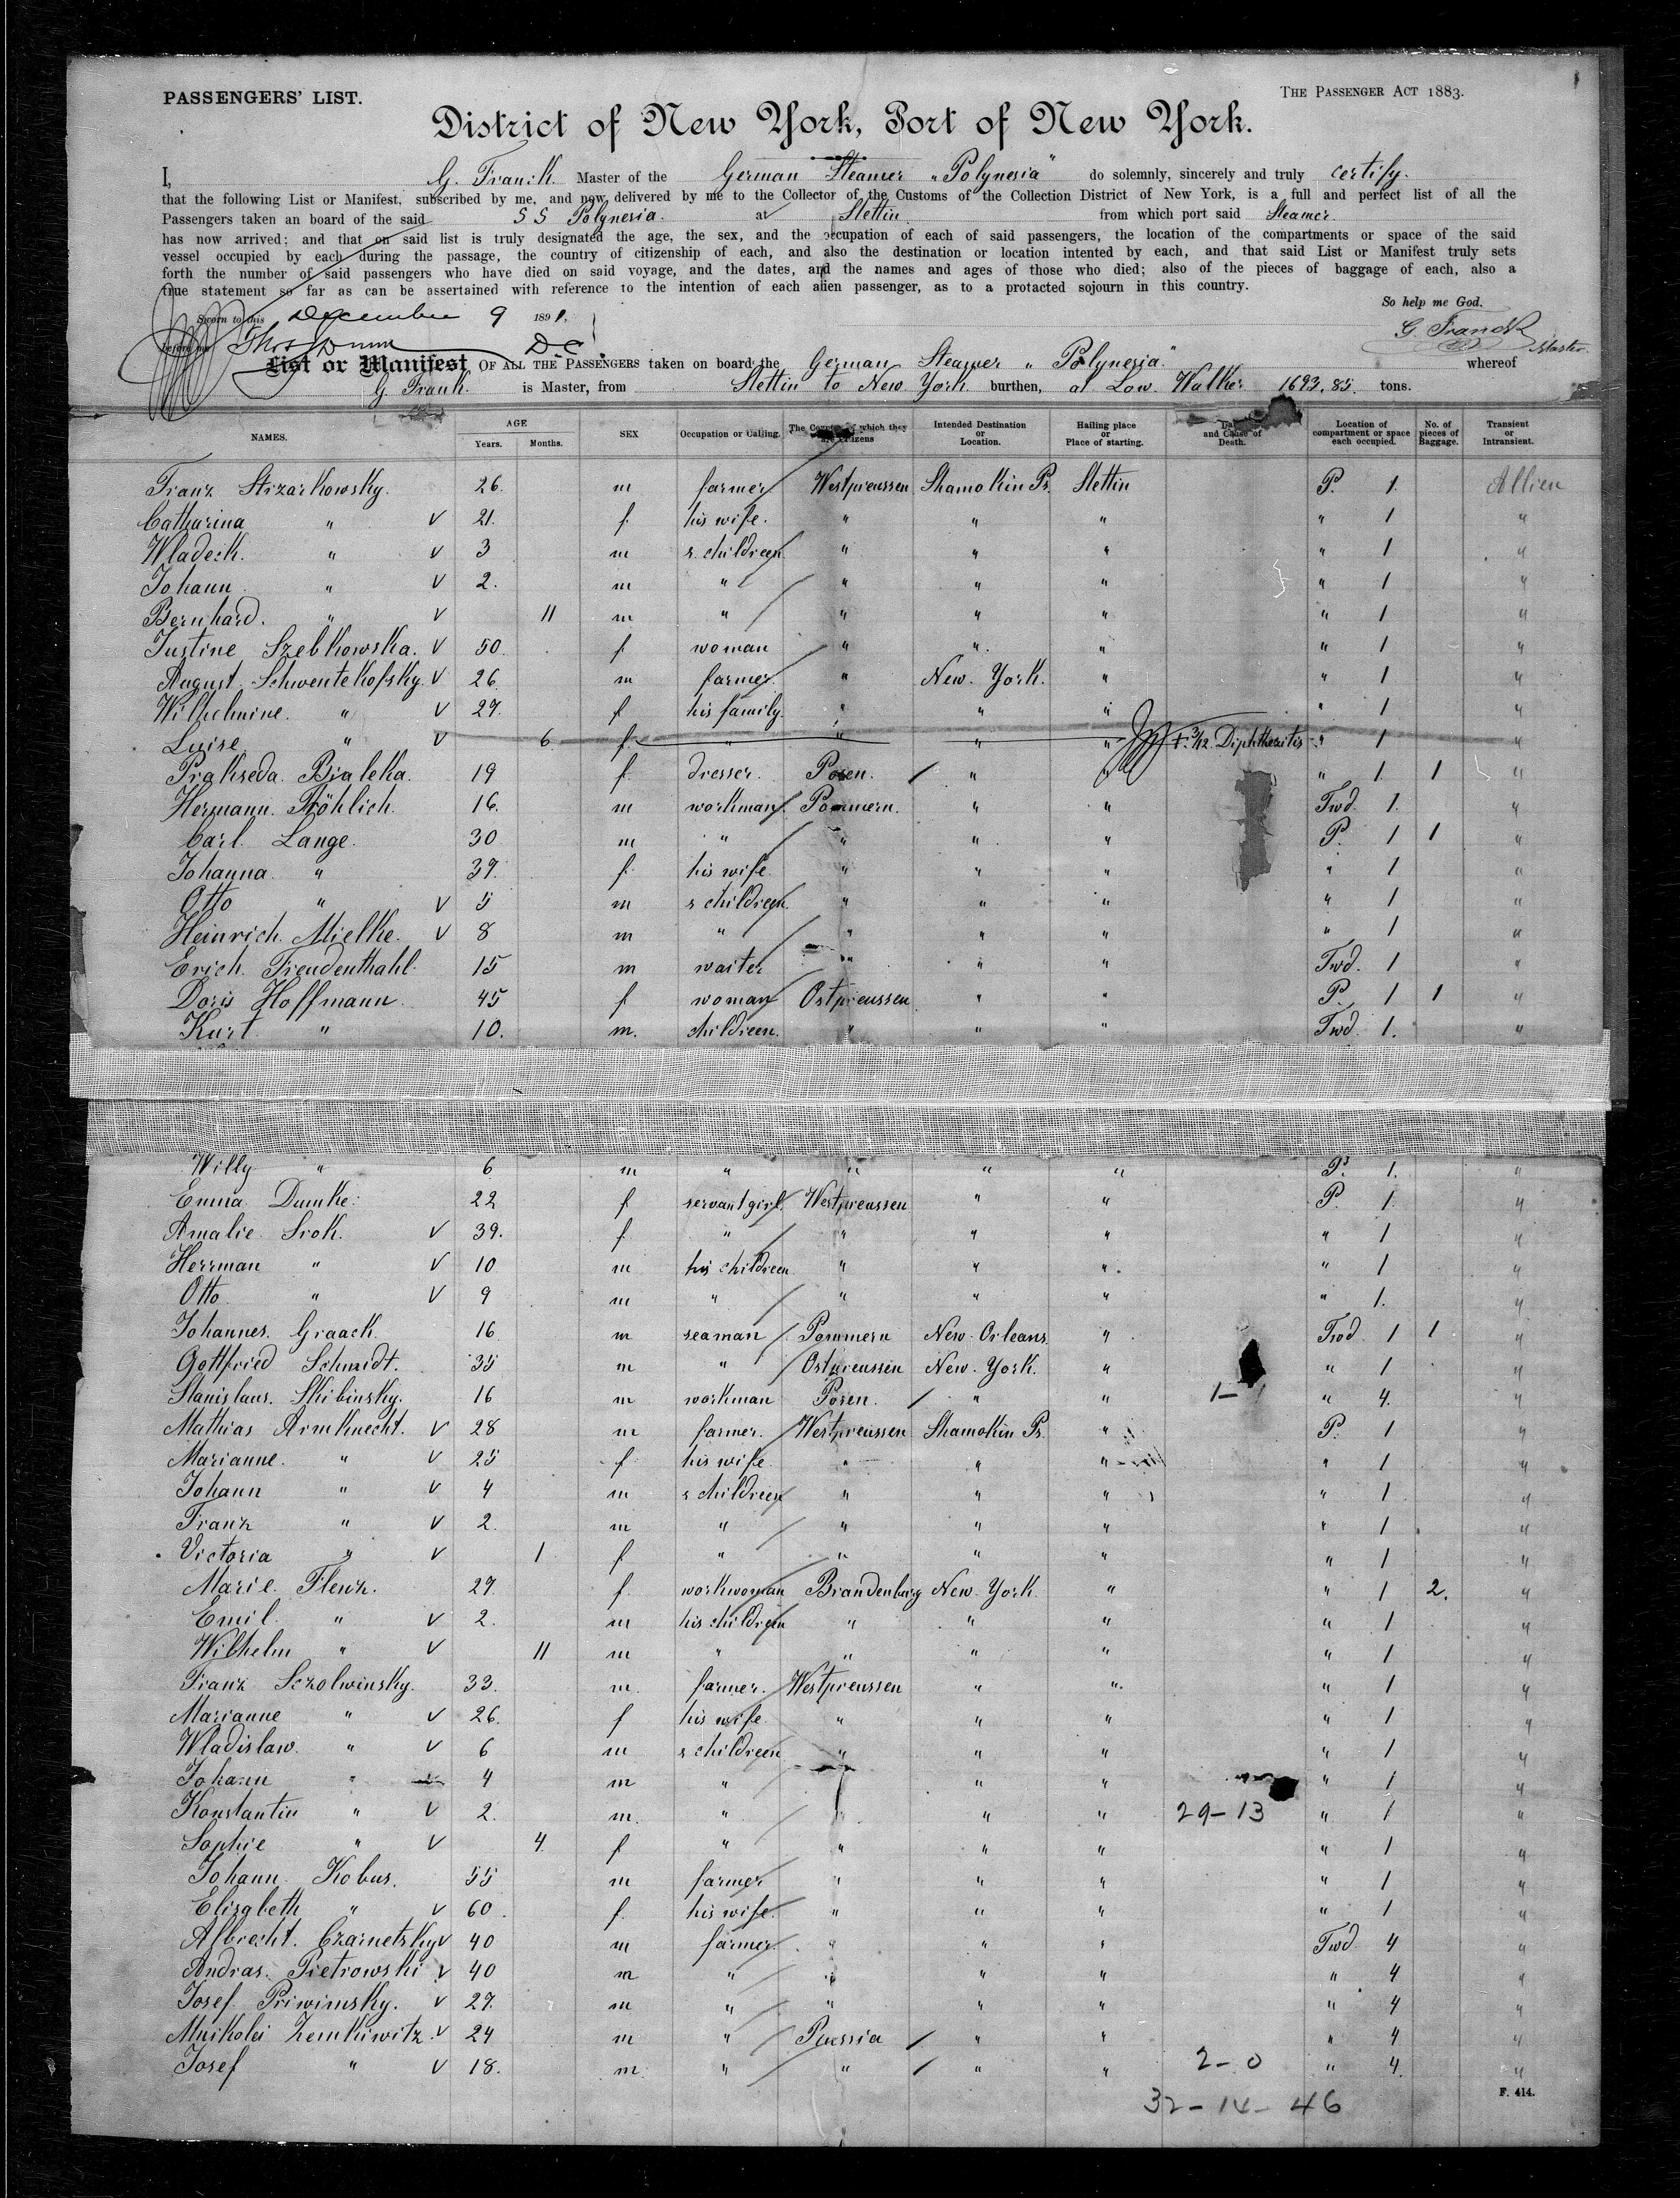 PASSENGERS' LIST.
THE PASSENGER ACT 1883.
District of New York, Port of New York.
I, G. Franck Master of the German Steamer "Polynesia" do solemnly, sincerely and truly certify.
that the following List or Manifest, subscribed by me, and now delivered by me to the Collector of the Customs of the Collection District of New York, is a full and perfect list of all the
Passengers taken an board of the said SS Polynesia. at Stettin from which port said Steamer
has now arrived; and that on said list is truly designated the age, the sex, and the occupation of each of said passengers, the location of the compartments or space of the said
vessel occupied by each during the passage, the country of citizenship of each, and also the destination or location intented by each, and that said List or Manifest truly sets
forth the number of said passengers who have died on said voyage, and the dates, and the names and ages of those who died; also of the pieces of baggage of each, also a
true statement so far as can be assertained with reference to the intention of each alien passenger, as to a protacted sojourn in this country.
So help me God.
Sworn to this December 9 1891.
G Franck Master.
before me Thos Dunn D.C.
List or Manifest OF ALL THE PASSENGERS taken on board the German Steamer "Polynesia" whereof
G Frank. is Master, from Stettin to New York burthen, at Low. Walker 1693,85 tons.
NAMES. AGE Years. Months. SEX Occupation or Calling. The Country of which they are citizens Intended Destination or Location. Hailing place or Place of starting. Date and Cause of Death. Location of compartment or space each occupied. No. of pieces of Baggage. Transient or Intransient.
Franz Strzarkowsky. 26. m farmer Westpreussen Shamokin Ps. Stettin P. 1. Allien
Catharina " V 21. f. his wife. " " " " 1 "
Wladeck. " V 3 m s. childreen " " " " 1 "
Johann " V 2. m " " " " " 1 "
Bernhard. " V 11 m " " " " " 1 "
Justine Szebkowska. V 50 f. woman " " " " 1 "
August Schwentekofsky. V 26. m farmer. " New. York. " " 1 "
Wilhelmine. " V 27. f his family. " " " " 1 "
Luise " V 6 f. " " " " †. 3/12. Diphtheritis " 1 "
Prakseda. Bialeka. 19 f. dresser. Posen. " " " 1. 1 "
Hermann. Fröhlich. 16. m workman. Pommern. " " Twd. 1. "
Carl. Lange. 30 m " " " " P. 1 1 "
Johanna. " 37. f. his wife. " " " " 1 "
Otto " V 5 m s childreen. " " " " 1 "
Heinrich. Mielke. V 8 m " " " " " 1 "
Erich. Freudenthahl. 15 m waiter " " " Twd. 1 "
Doris Hoffmann. 45 f woman Ostpreussen " " P. 1 1 "
Kurt " 10. m. childreen. " " " Twd 1. "
Willy " 6 m " " " " P. 1. "
Emma Dumke. 22 f servant girl. Westpreussen " " P. 1. "
Amalie. Srok. V 39. f. " " " " " 1 "
Herrman " V 10 m his childreen " " " " 1 "
Otto " V 9 m " " " " " 1. "
Johannes. Graack. 16 m seaman Pommern New-Orleans " Twd 1 1 "
Gottfried Schmidt. 35 m " Ostpreussen New-York. " " 1 "
Stanislaus. Skibinsky. 16 m workman Posen. " " 1- " 4. "
Mathias Armknecht. V 28 m farmer. Westpreussen Shamokin Ps. " P. 1 "
Marianne. " V 25 f his wife. " " " " 1 "
Johann " V 4 m s childreen " " " " 1 "
Franz " V 2. m " " " " " 1 "
Victoria " V 1 f " " " " " 1 "
Marie. Flenz. 27. f. workwoman Brandenburg New-York. " " 1 2. "
Emil. " V 2. m his childreen " " " " 1 "
Wilhelm " V 11 m " " " " " 1 "
Franz Sczolwinsky. 33. m. farmer. Westpreussen " " " 1 "
Marianne " V 26. f his wife " " " " 1 "
Wladislaw. " V 6 m s childreen " " " " 1 "
Johann " 4 m " " " " 1 "
Konstantin " V 2. m. " " " " 29-13 " 1 "
Sophie " V 4. f " " " " " 1 "
Johann Kobus. 55 m farmer " " " " 1 "
Elisabeth " V 60. f his wife. " " " " 1 "
Albrecht. Czarnetsky V 40 m farmer. " " " Twd 4 "
Andras. Pietrowski V 40 m " " " " " 4 "
Josef Priwimsky. V 27. m " " " " " 4 "
Muikolei Zemkiwitz. V 24 m " Puessia " " " 4 "
Josef " V 18. m. " " " " 2-0 " 4. "
F. 414.
32-14-46